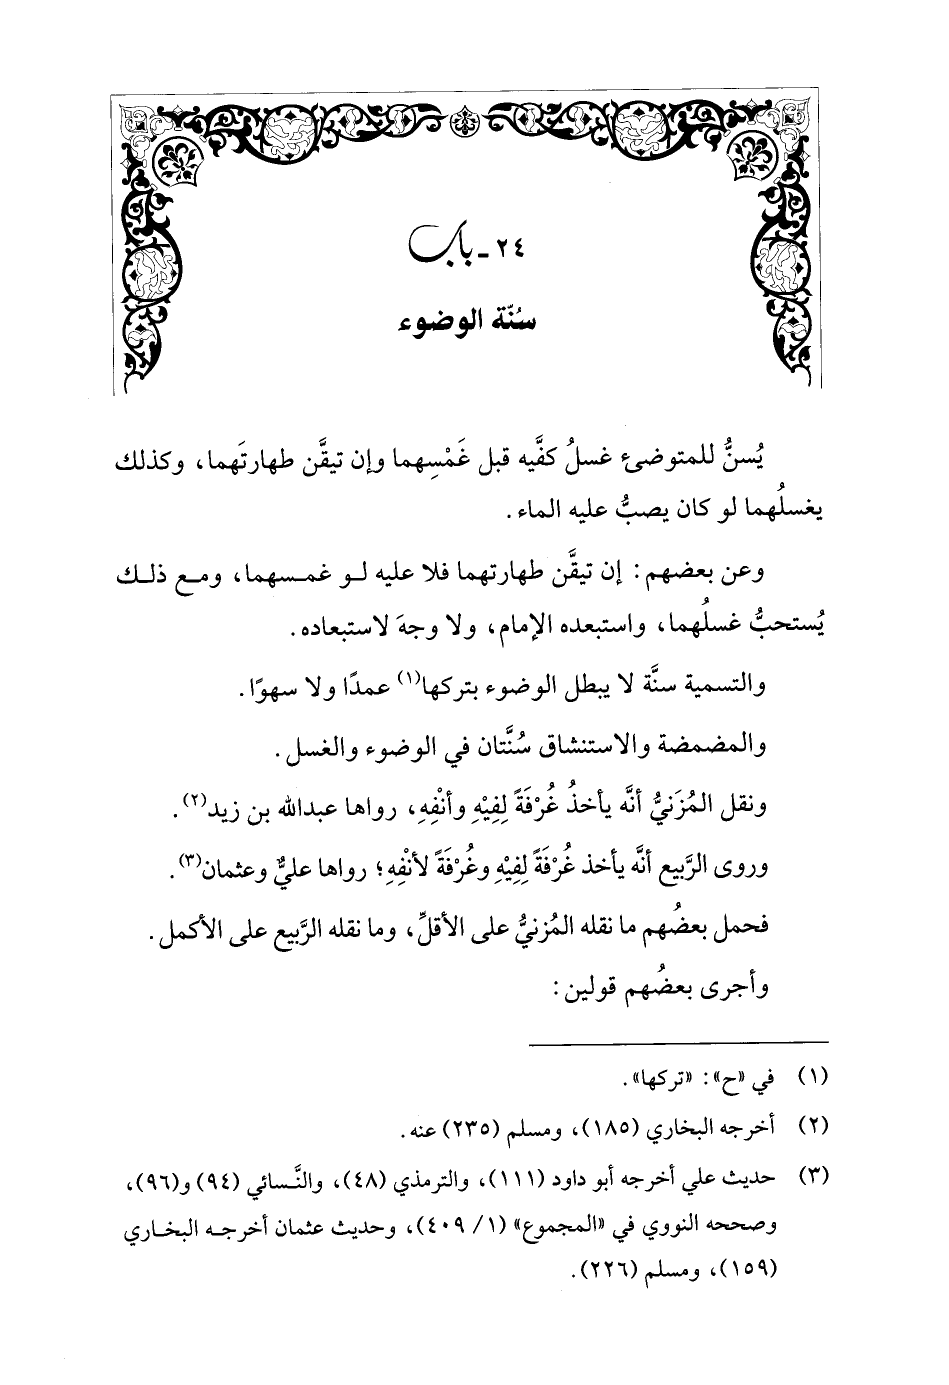 ٢٤ ـ باب
سُنّة الوضوء
يُسنُّ للمتوضىء غسلُ كفَّيه قبل غَمْسِهما وإن تيقَّن طهارتَهما، وكذلك
يغسلُهما لو كان يصبُّ عليه الماء.
وعن بعضهم: إن تيقَّن طهارتهما فلا عليه لو غمسهما، ومع ذلك
يُستحبُّ غسلُهما، واستبعده الإمام، ولا وجهَ لاستبعاده.
والتسمية سنَّة لا يبطل الوضوء بتركها(١) عمدًا ولا سهوًا.
والمضمضة والاستنشاق سُنَّتان في الوضوء والغسل.
ونقل المُزَنيُّ أنَّه يأخذُ غُرْفَةً لِفِيْهِ وأنْفِهِ، رواها عبدالله بن زيد(٢).
وروى الرَّبيع أنَّه يأخذ غُرْفَةً لِفِيْهِ وغُرْفَةً لأنْفِهِ؛ رواها عليٌّ وعثمان(٣).
فحمل بعضُهم ما نقله المُزنيُّ على الأقلِّ، وما نقله الرَّبيع على الأكمل.
وأجرى بعضُهم قولين:
(١) في «ح»: «تركها».
(٢) أخرجه البخاري (١٨٥)، ومسلم (٢٣٥) عنه.
(٣) حديث علي أخرجه أبو داود (١١١)، والترمذي (٤٨)، والنَّسائي (٩٤) و(٩٦)،
وصححه النووي في «المجموع» (١/ ٤٠٩)، وحديث عثمان أخرجه البخاري
(١٥٩)، ومسلم (٢٢٦).